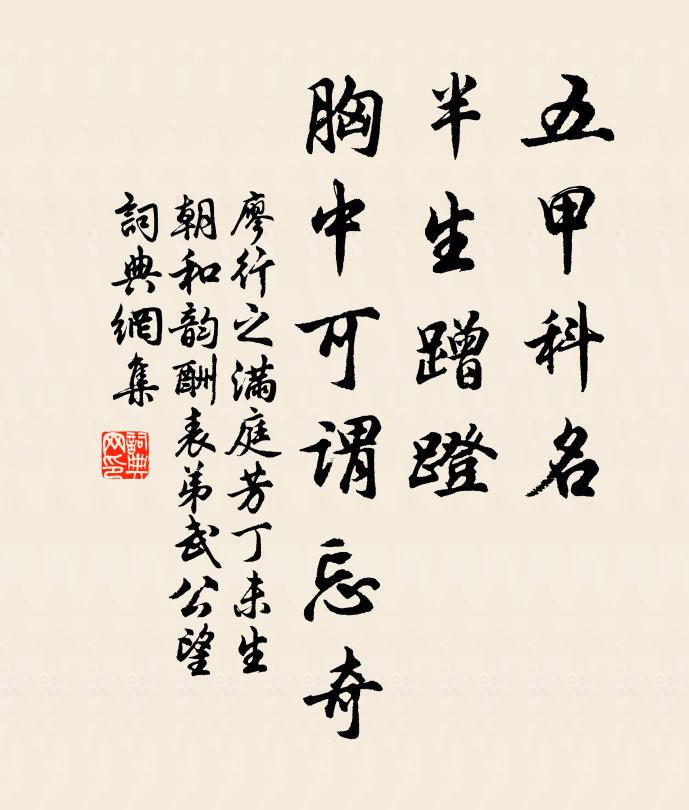 五甲科名
半生蹭蹬
胸中可谓忘奇
廖行之满庭芳丁未生
朝和韵酬表弟武公望
词典网集
词典网印